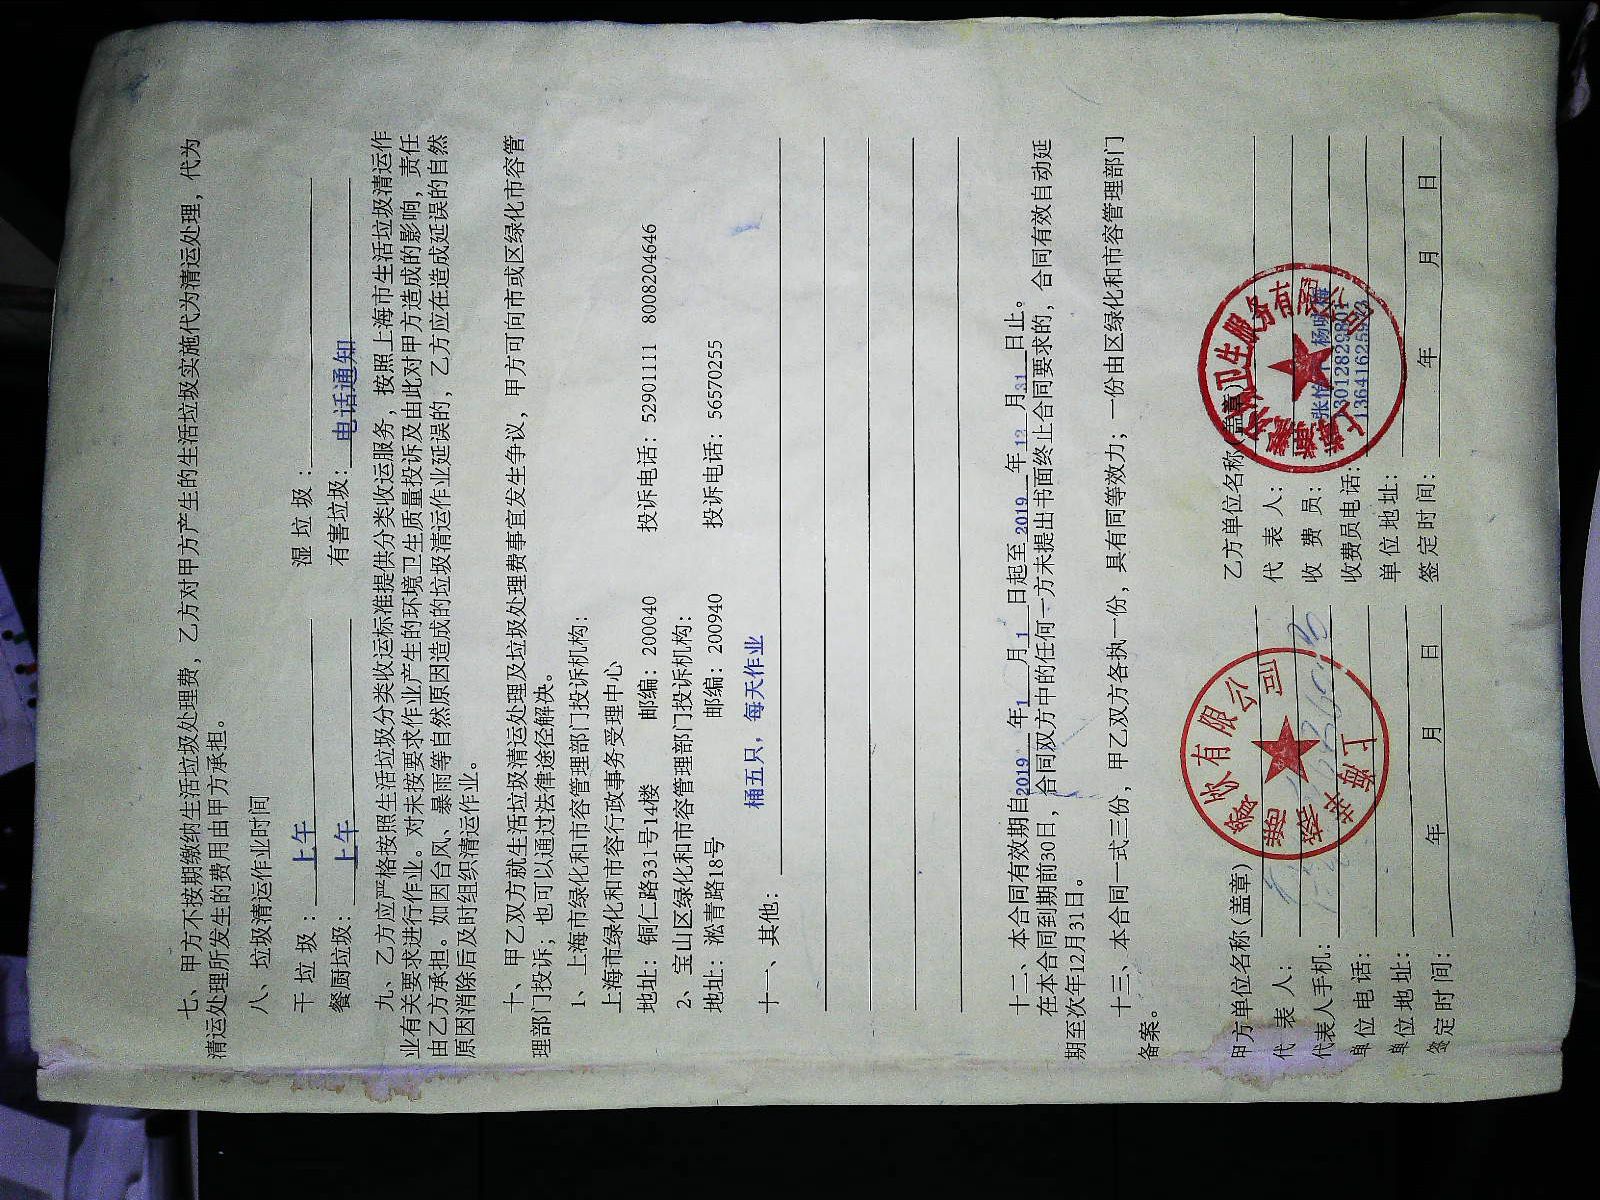 七、甲方不按期缴纳生活垃圾处理费，乙方对甲方产生的生活垃圾实施代为清运处理，代为
清运处理所发生的费用由甲方承担。
八、垃圾清运作业时间
干垃圾：上午 湿垃圾：
餐厨垃圾：上午 有害垃圾：电话通知
九、乙方应严格按照生活垃圾分类收运标准提供分类收运服务，按照上海市生活垃圾清运作
业有关要求进行作业。对未按要求作业产生的环境卫生质量投诉及由此对甲方造成的影响，责任
由乙方承担。如因台风、暴雨等自然原因造成的垃圾清运作业延误的，乙方应在造成延误的自然
原因消除后及时组织清运作业。
十、甲乙双方就生活垃圾清运处理及垃圾处理费事宜发生争议，甲方可向市或区绿化市容管
理部门投诉；也可以通过法律途径解决。
1、上海市绿化和市容管理部门投诉机构：
上海市绿化和市容行政事务受理中心
地址：铜仁路331号14楼 邮编：200040 投诉电话：52901111 8008204646
2、宝山区绿化和市容管理部门投诉机构：
地址：淞青路18号 邮编：200940 投诉电话：56570255
桶五只，每天作业
十一、其他：
十二、本合同有效期自2019年1月1日起至2019年12月31日止。
在本合同到期前30日，合同双方中的任何一方未提出书面终止合同要求的，合同有效自动延
期至次年12月31日。
十三、本合同一式三份，甲乙双方各执一份，具有同等效力；一份由区绿化和市容管理部门
备案。
甲方单位名称（盖章） 乙方单位名称（盖章）
代表人： 代表人：
代表人手机： 收费员：
单位电话： 收费员电话：
单位地址： 单位地址：
签定时间： 年 月 日 签定时间： 年 月 日